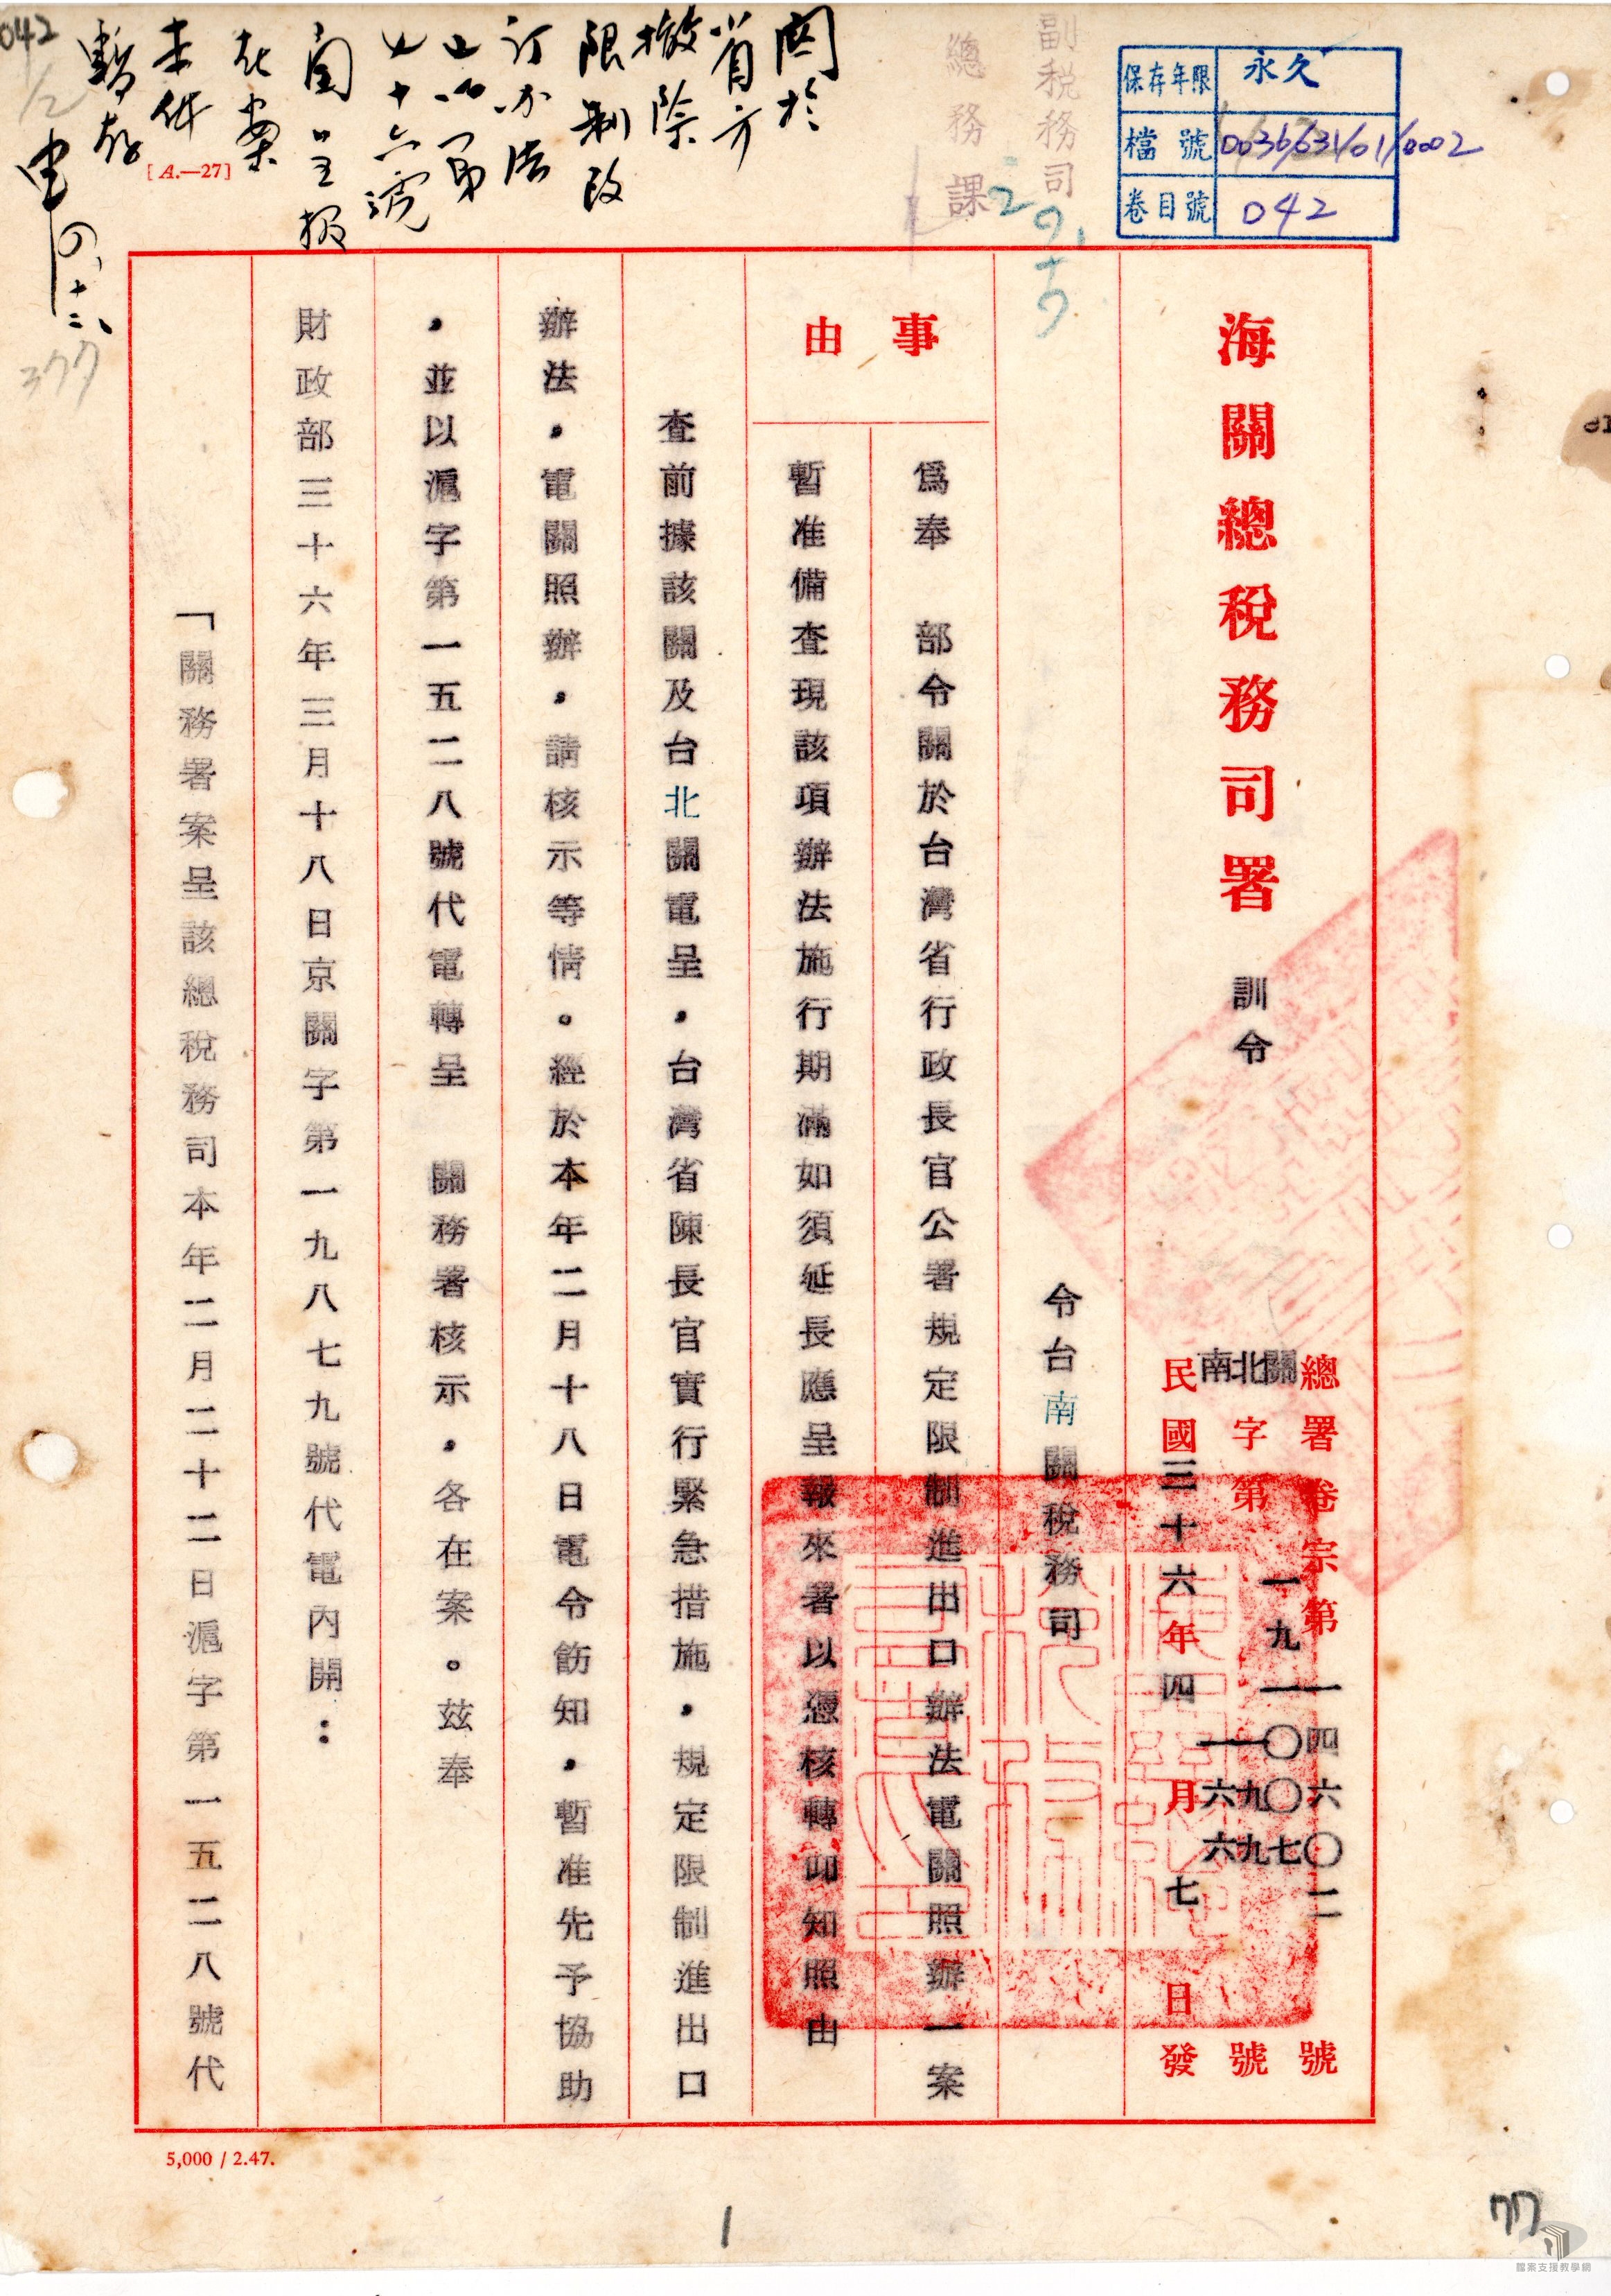 保存年限 永久
檔號 0036/631/01/0002
卷目號 042
副稅務司
總務課
關於
省方
撤除
限制改
訂辦法
六十六號
向呈報
在案
本件
暫存
042
[A.—27]
377
海關總稅務司署 訓令
總署卷宗第一四六〇二號
關字第一九一〇〇七號
北 一九九
南 一六六
民國三十六年四月七日發
令台南關稅務司
事由
爲奉 部令關於台灣省行政長官公署規定限制進出口辦法電關照辦一案
暫准備查現該項辦法施行期滿如須延長應呈報來署以憑核轉卬知照由
查前據該關及台北關電呈，台灣省陳長官實行緊急措施，規定限制進出口
辦法，電關照辦，請核示等情。經於本年二月十八日電令飭知，暫准先予協助
，並以滬字第一五二八號代電轉呈 關務署核示，各在案。茲奉
財政部三十六年三月十八日京關字第一九八七九號代電內開：
「關務署案呈該總稅務司本年二月二十二日滬字第一五二八號代
5,000 / 2.47.
1
77
檔案支援教學網